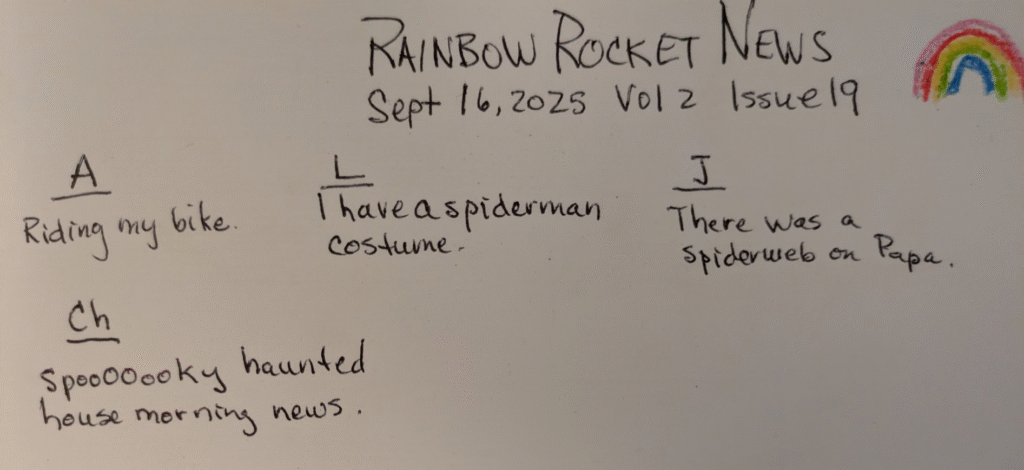 RAINBOW ROCKET NEWS
Sept 16, 2025 Vol 2 Issue 19
A
Riding my bike.
L
I have a spiderman
costume.
J
There was a
spiderweb on Papa.
Ch
SpooOOooky haunted
house morning news.